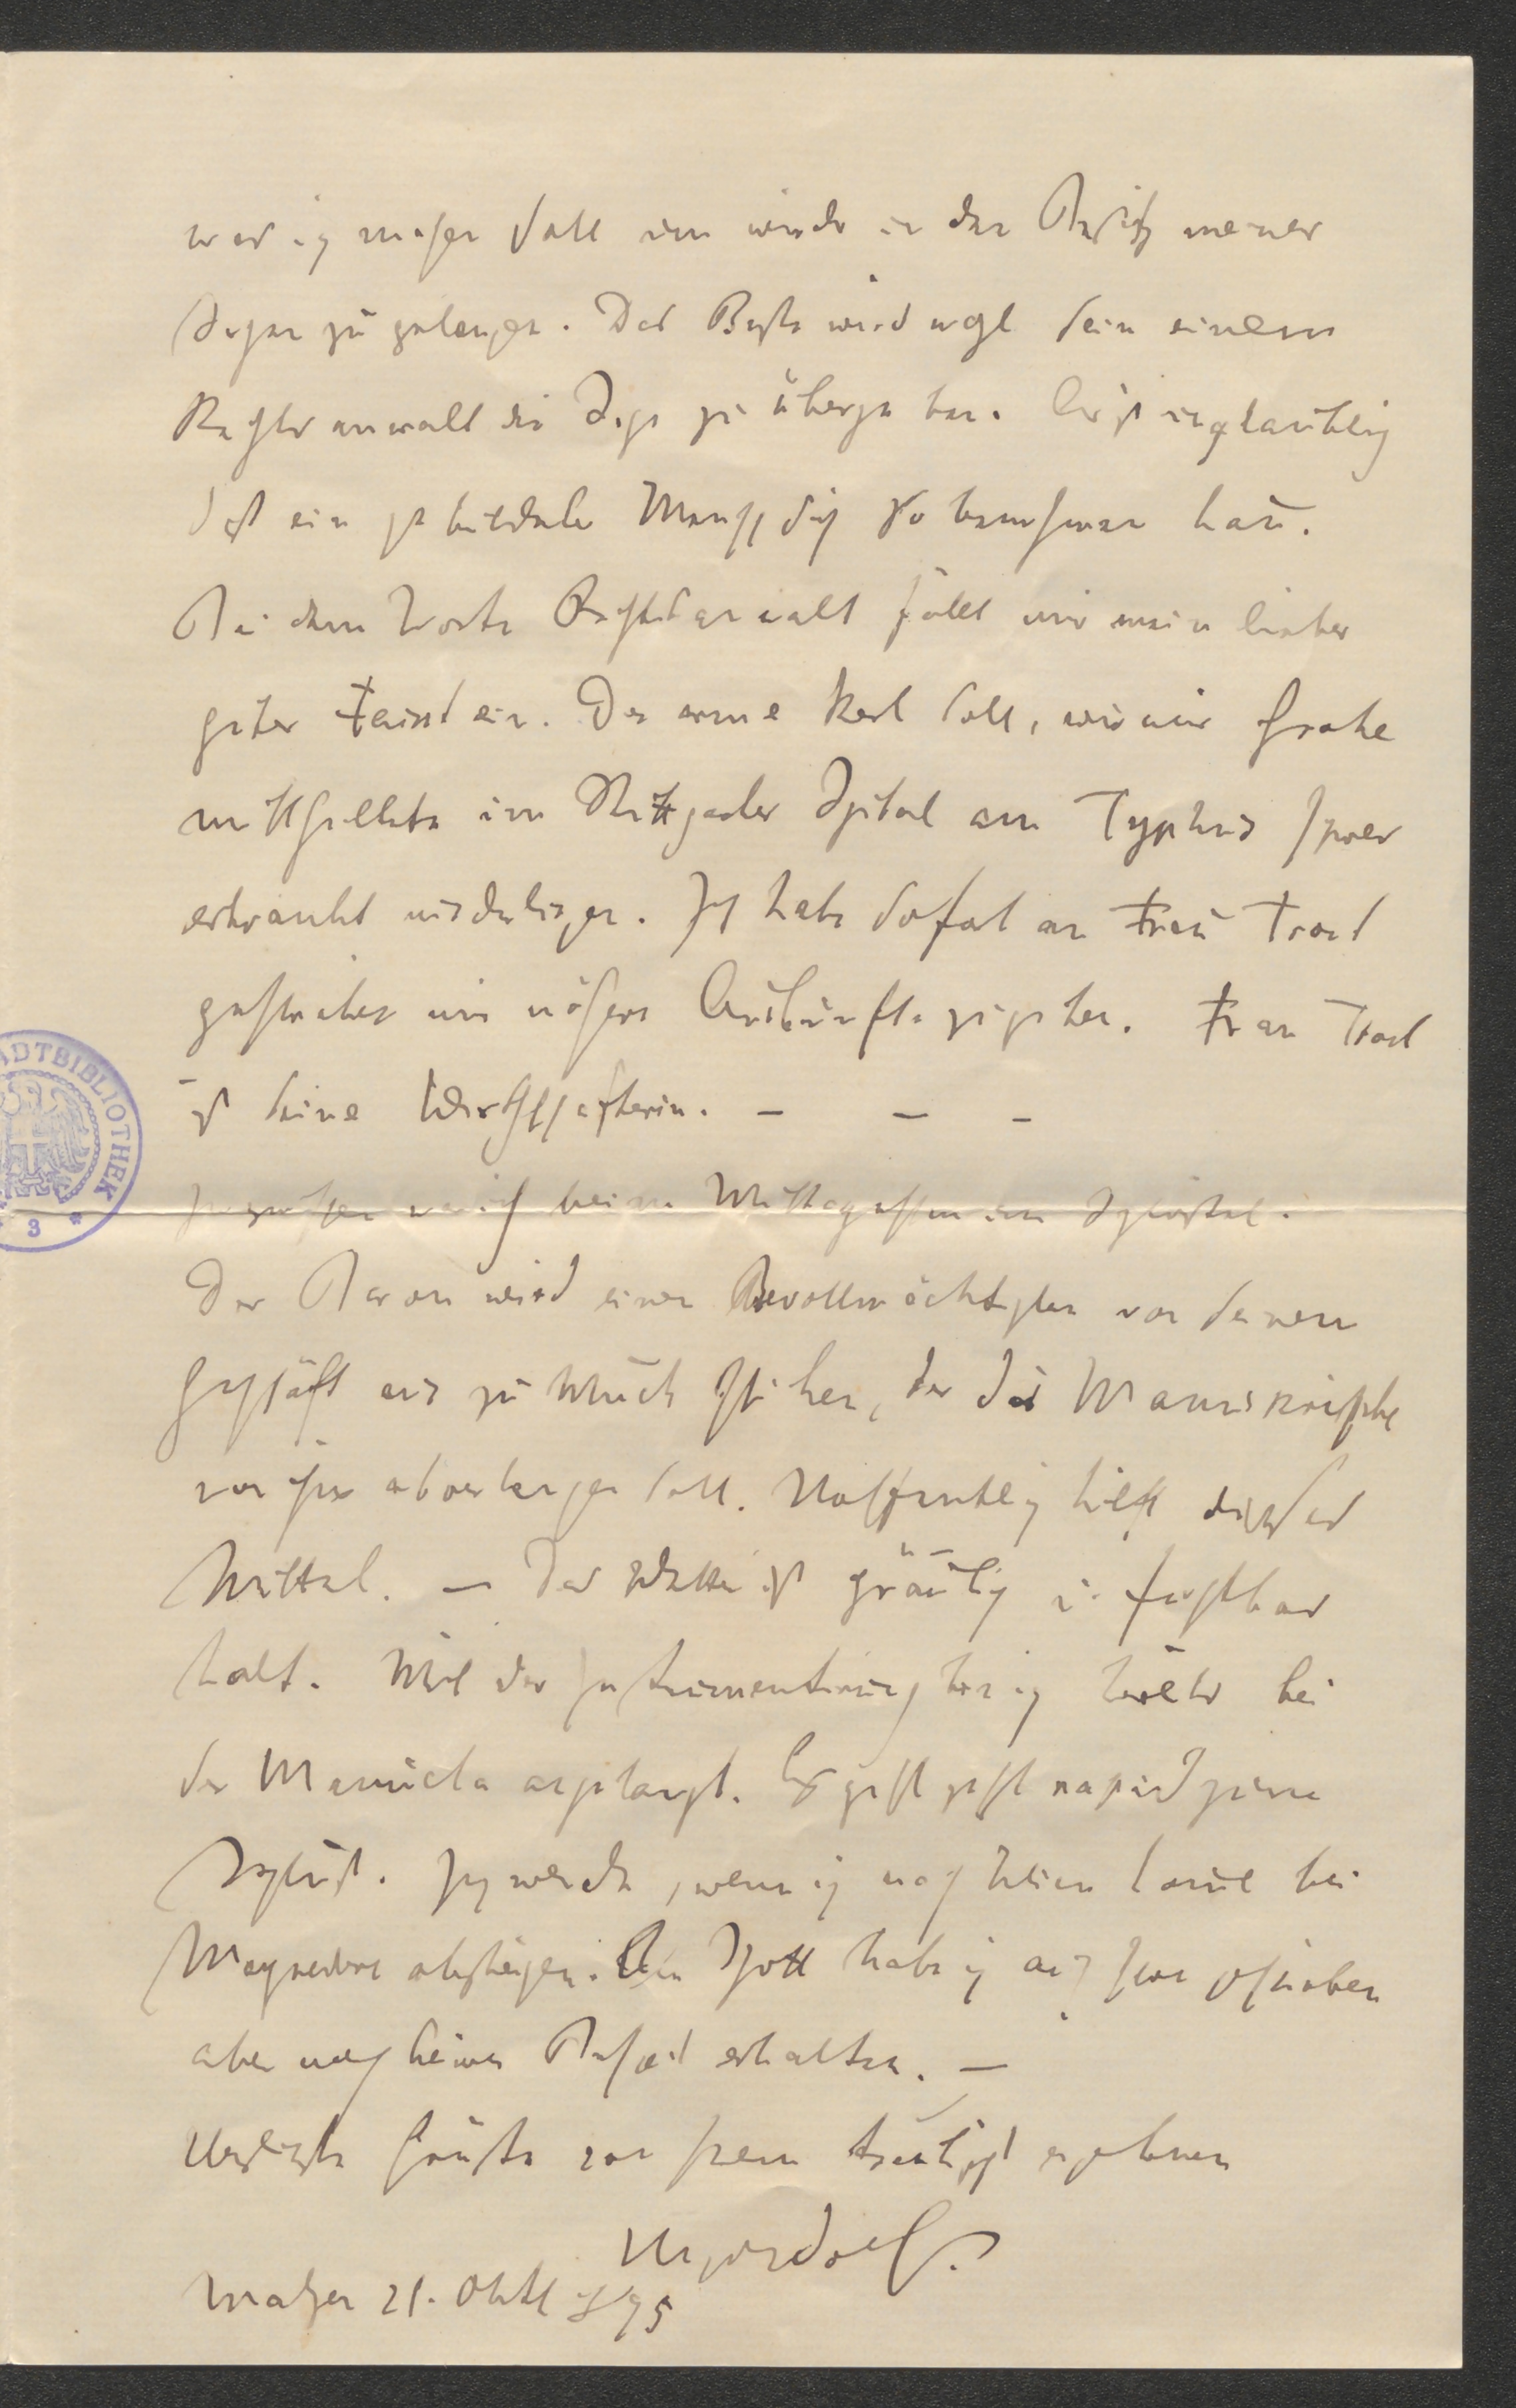 was ich machen soll um wieder in den Besitz meiner
Sachen zu gelangen. Das Beste wird wohl sein einem
Rechtsanwalt die Sache zu übergeben. Es ist unglaublich
daß ein gebildeter Mensch sich so benehmen kann.
Bei dem Worte Rechtsanwalt fällt mir mein lieber
guter Faisst ein. Der arme Kerl soll, wie mir Grohe
mittheilte im Stuttgarter Spital am Typhus schwer
erkrankt niederliegen. Ich habe sofort an Frau Trost
geschrieben mir nähere Auskunft zu geben. Frau Trost
ist seine Wirthschafterin. – – –
beim Mittagessen im
Der Baron wird einen Bevollmächtigten von seinem
Geschäft aus zu Mück schicken, der die Manuskripte
von ihm abverlangen soll. Hoffentlich hilft dieses
Mittel. – Das Wetter ist gräulich u. furchtbar
kalt. Mit der Instrumentirung bin ich bereits bei
der Manuela angelangt. Es geht jetzt rapid zum
Schluß. Ich werde, wenn ich nach Wien komme bei
Mayreder absteigen. An Schott habe ich auch schon geschrieben
aber noch keinen Bescheid erhalten. –
Herzlichste Grüße von Ihrem treulichst ergebenen
Hugo Wolf.
Matzen 21. Okt 1895
STADTBIBLIOTHEK
3